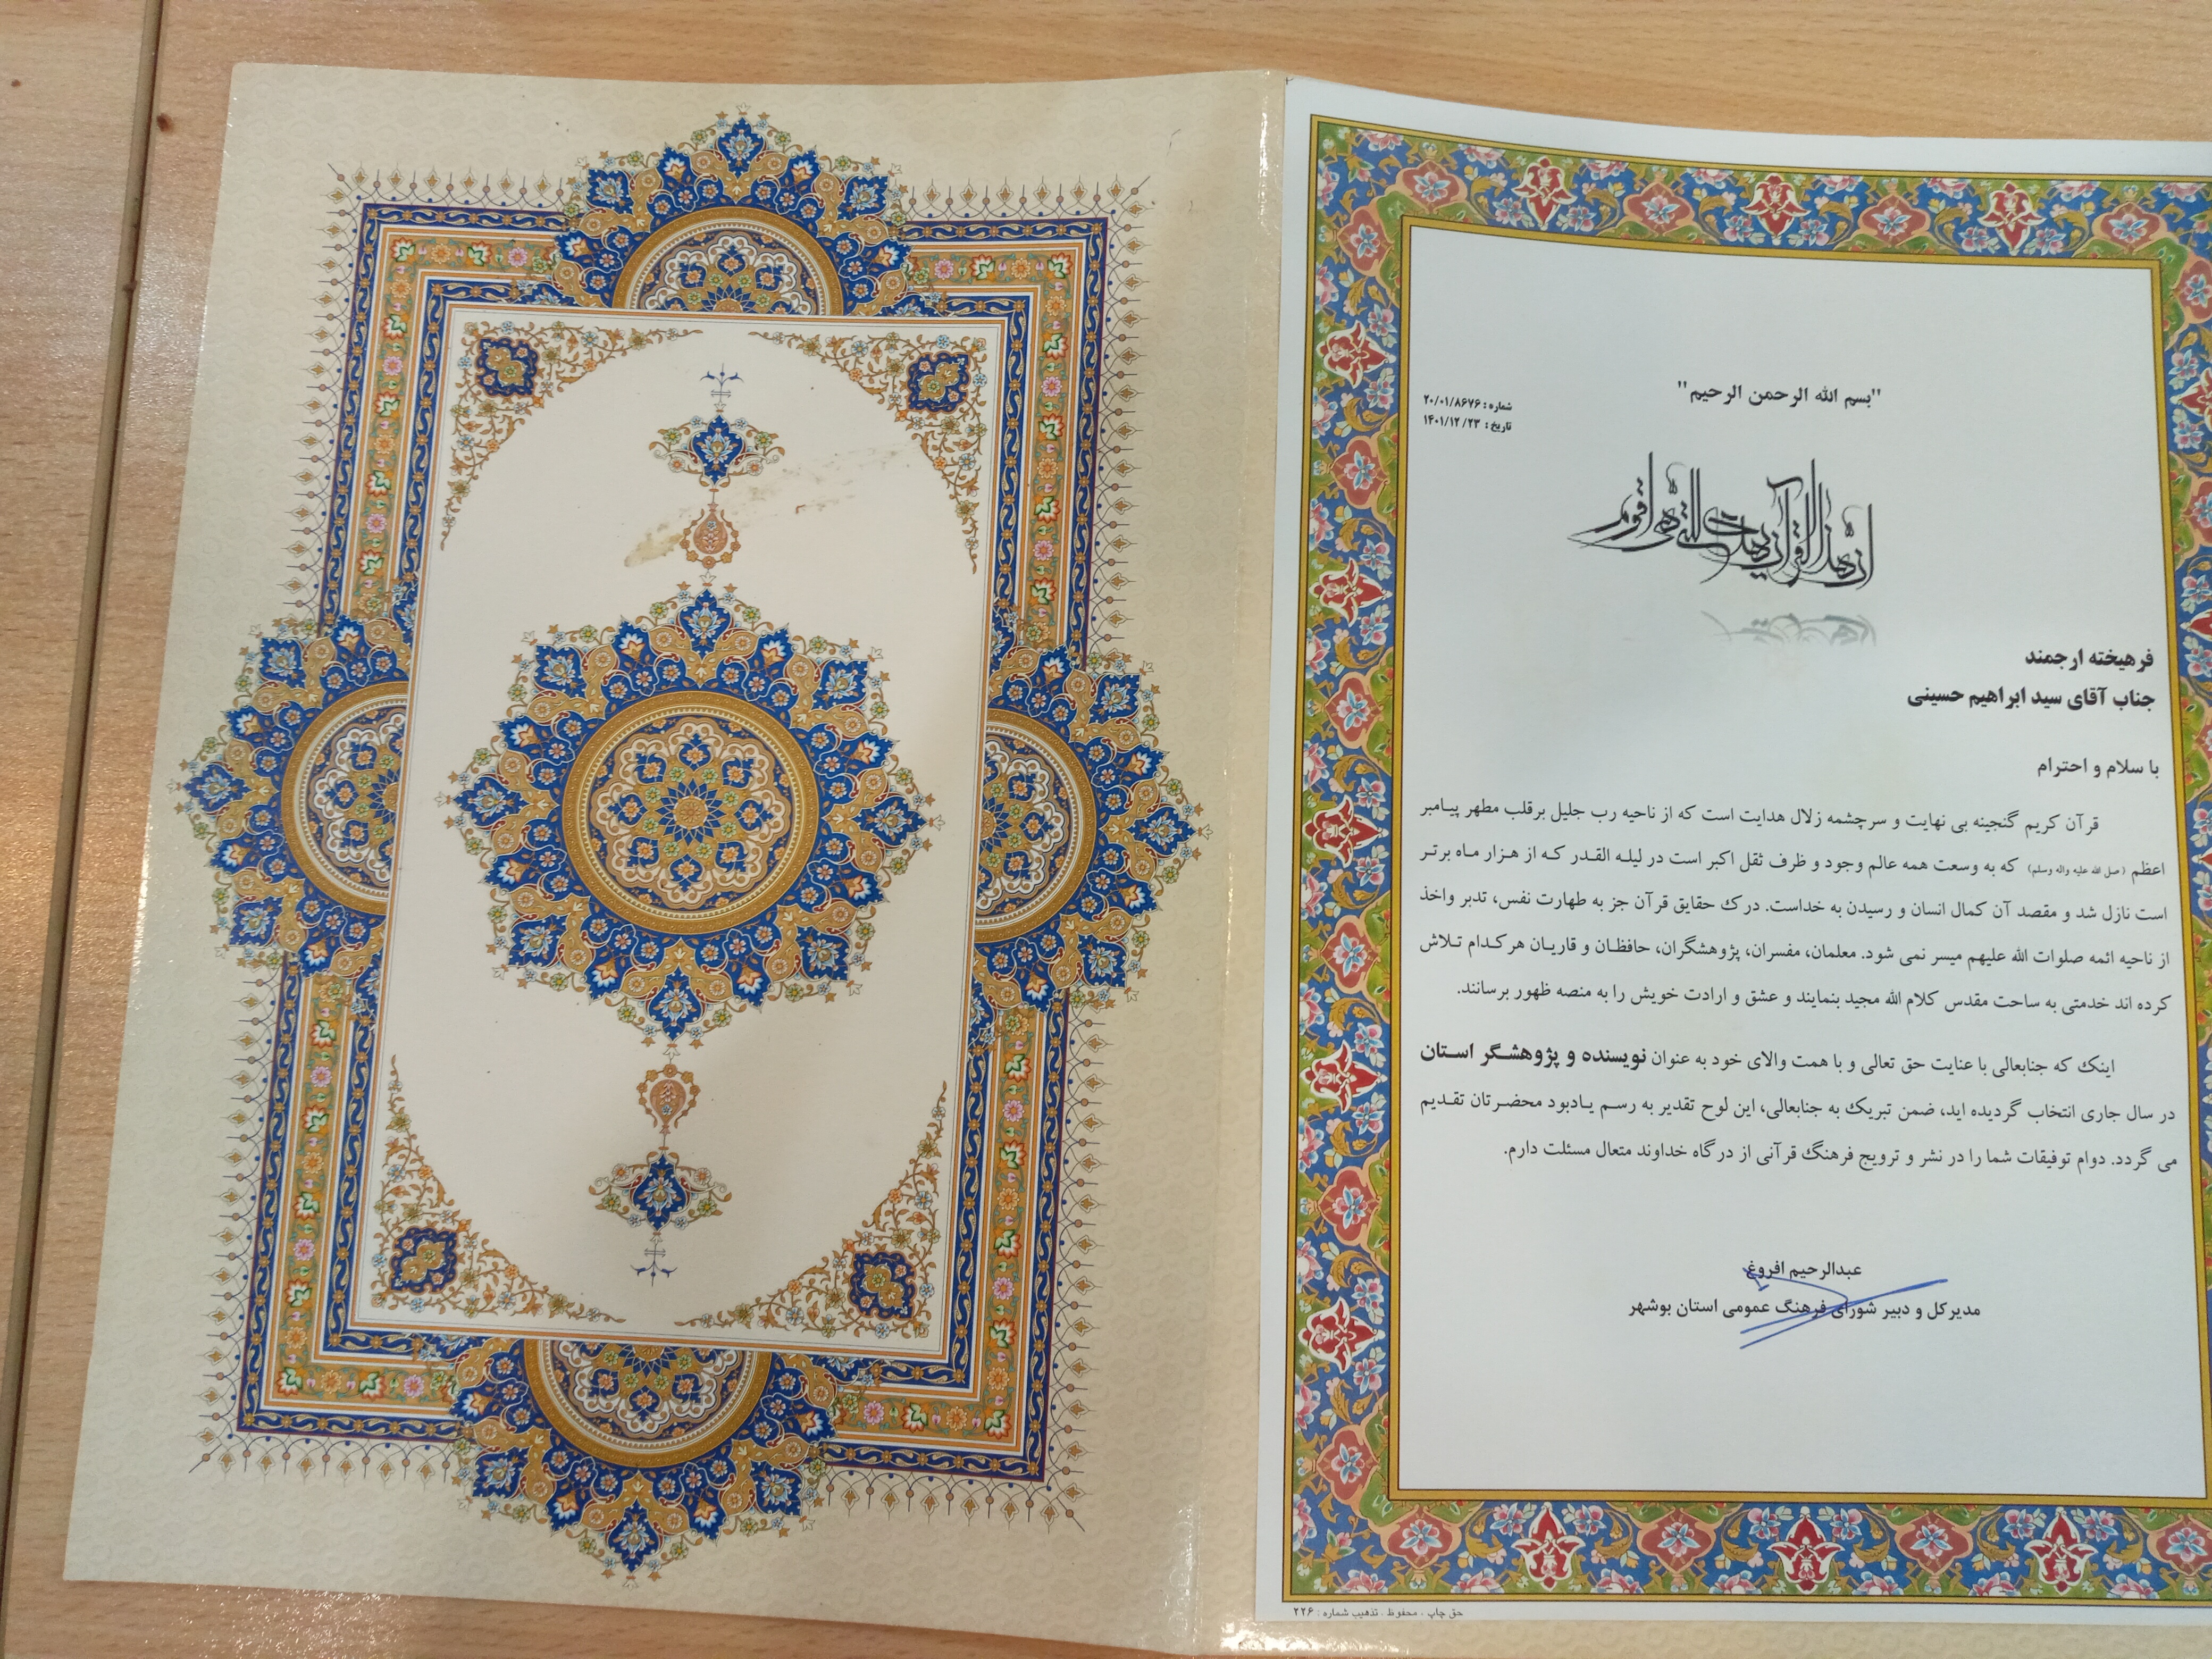 "بسم الله الرحمن الرحیم"
شماره : ۲۰/۰۱/۸۶۷۶
تاریخ : ۱۴۰۱/۱۲/۲۳
ان هذا القرآن یهدی للتی هی اقوم
فرهیخته ارجمند
جناب آقای سید ابراهیم حسینی
با سلام و احترام
قرآن کریم گنجینه بی نهایت و سرچشمه زلال هدایت است که از ناحیه رب جلیل برقلب مطهر پیامبر
اعظم (صل الله علیه واله وسلم) که به وسعت همه عالم وجود و ظرف ثقل اکبر است در لیله القدر که از هزار ماه برتر
است نازل شد و مقصد آن کمال انسان و رسیدن به خداست. درک حقایق قرآن جز به طهارت نفس، تدبر واخذ
از ناحیه ائمه صلوات الله علیهم میسر نمی شود. معلمان، مفسران، پژوهشگران، حافظان و قاریان هرکدام تلاش
کرده اند خدمتی به ساحت مقدس کلام الله مجید بنمایند و عشق و ارادت خویش را به منصه ظهور برسانند.
اینک که جنابعالی با عنایت حق تعالی و با همت والای خود به عنوان نویسنده و پژوهشگر استان
در سال جاری انتخاب گردیده اید، ضمن تبریک به جنابعالی، این لوح تقدیر به رسم یادبود محضرتان تقدیم
می گردد. دوام توفیقات شما را در نشر و ترویج فرهنگ قرآنی از درگاه خداوند متعال مسئلت دارم.
عبدالرحیم افروغ
مدیرکل و دبیر شورای فرهنگ عمومی استان بوشهر
حق چاپ ، محفوظ . تذهیب شماره : ۲۲۶